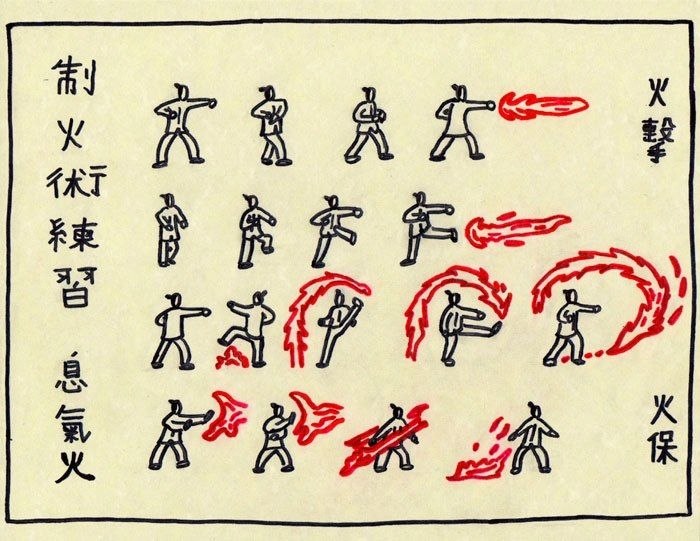 制火術練習 息氣火
火擊
火保